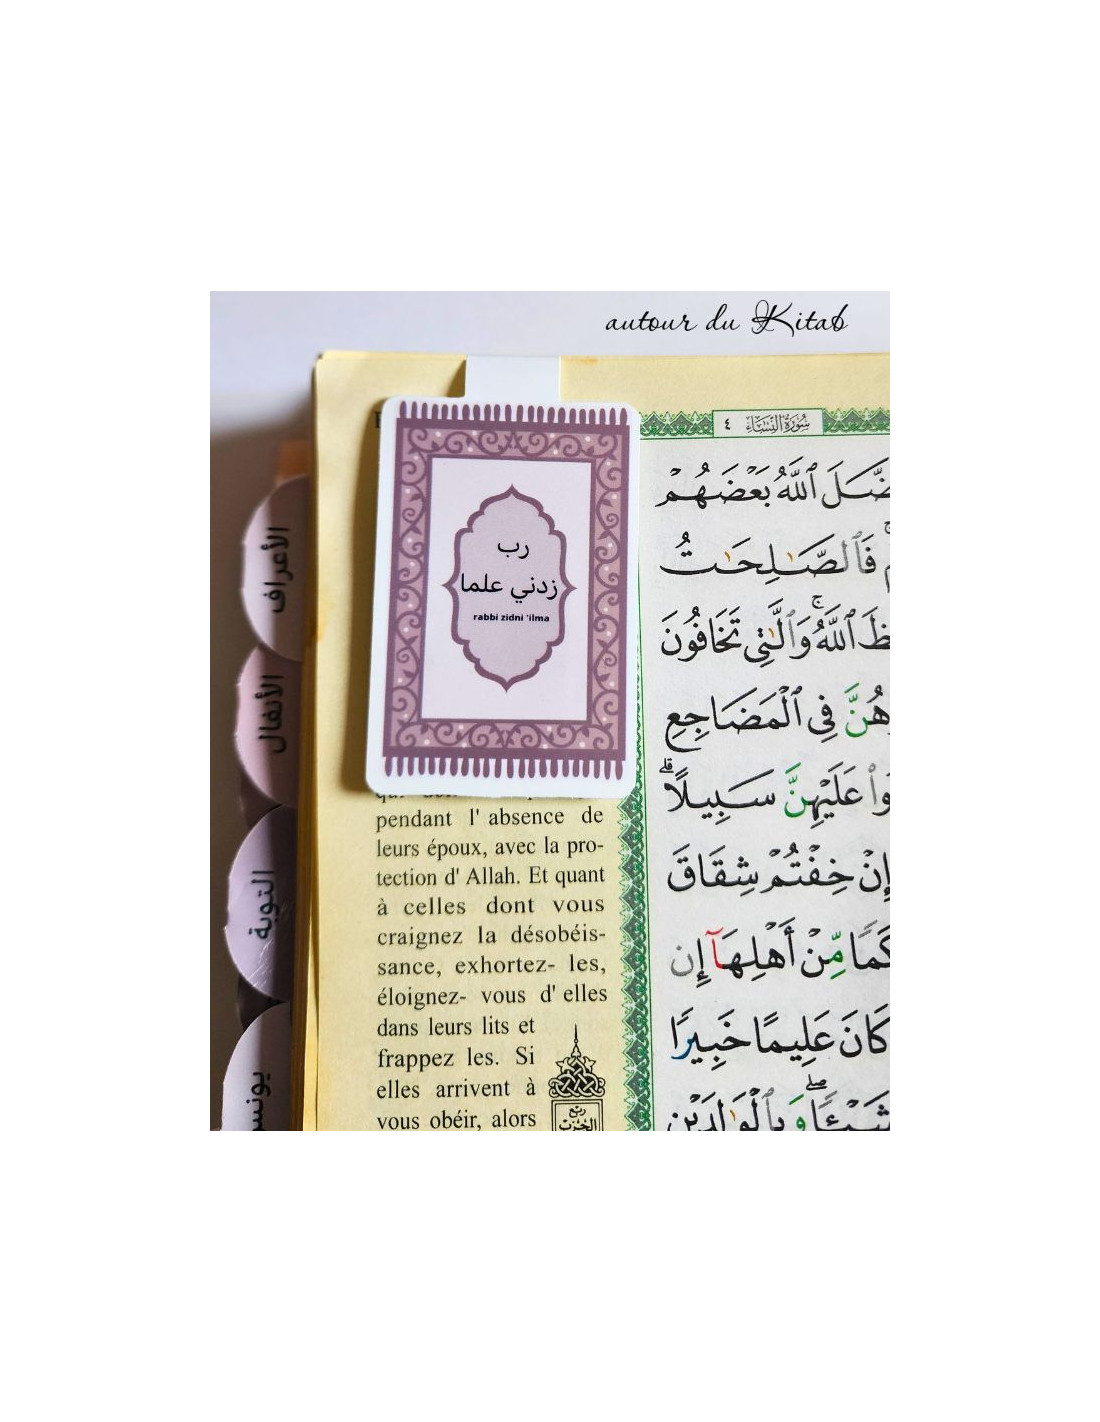 autour du Kitab
٤ سُورَةُ النِّسَاءِ
رب
زدني علما
rabbi zidni 'ilma
الأعراف
الأنفال
التوبة
يونس
pendant l' absence de
leurs époux, avec la pro-
tection d' Allah. Et quant
à celles dont vous
craignez la désobéis-
sance, exhortez- les,
éloignez- vous d' elles
dans leurs lits et
frappez les. Si
elles arrivent à
vous obéir, alors
ربع
الحزب
ٱللَّهُ بَعْضَهُمْ
فَٱلصَّـٰلِحَـٰتُ
ٱللَّهُ ۚ وَٱلَّـٰتِى تَخَافُونَ
فِى ٱلْمَضَاجِعِ
عَلَيْهِنَّ سَبِيلًا ۗ
خِفْتُمْ شِقَاقَ
مِّنْ أَهْلِهَآ إِن
كَانَ عَلِيمًا خَبِيرًا
وَبِٱلْوَٰلِدَيْنِ